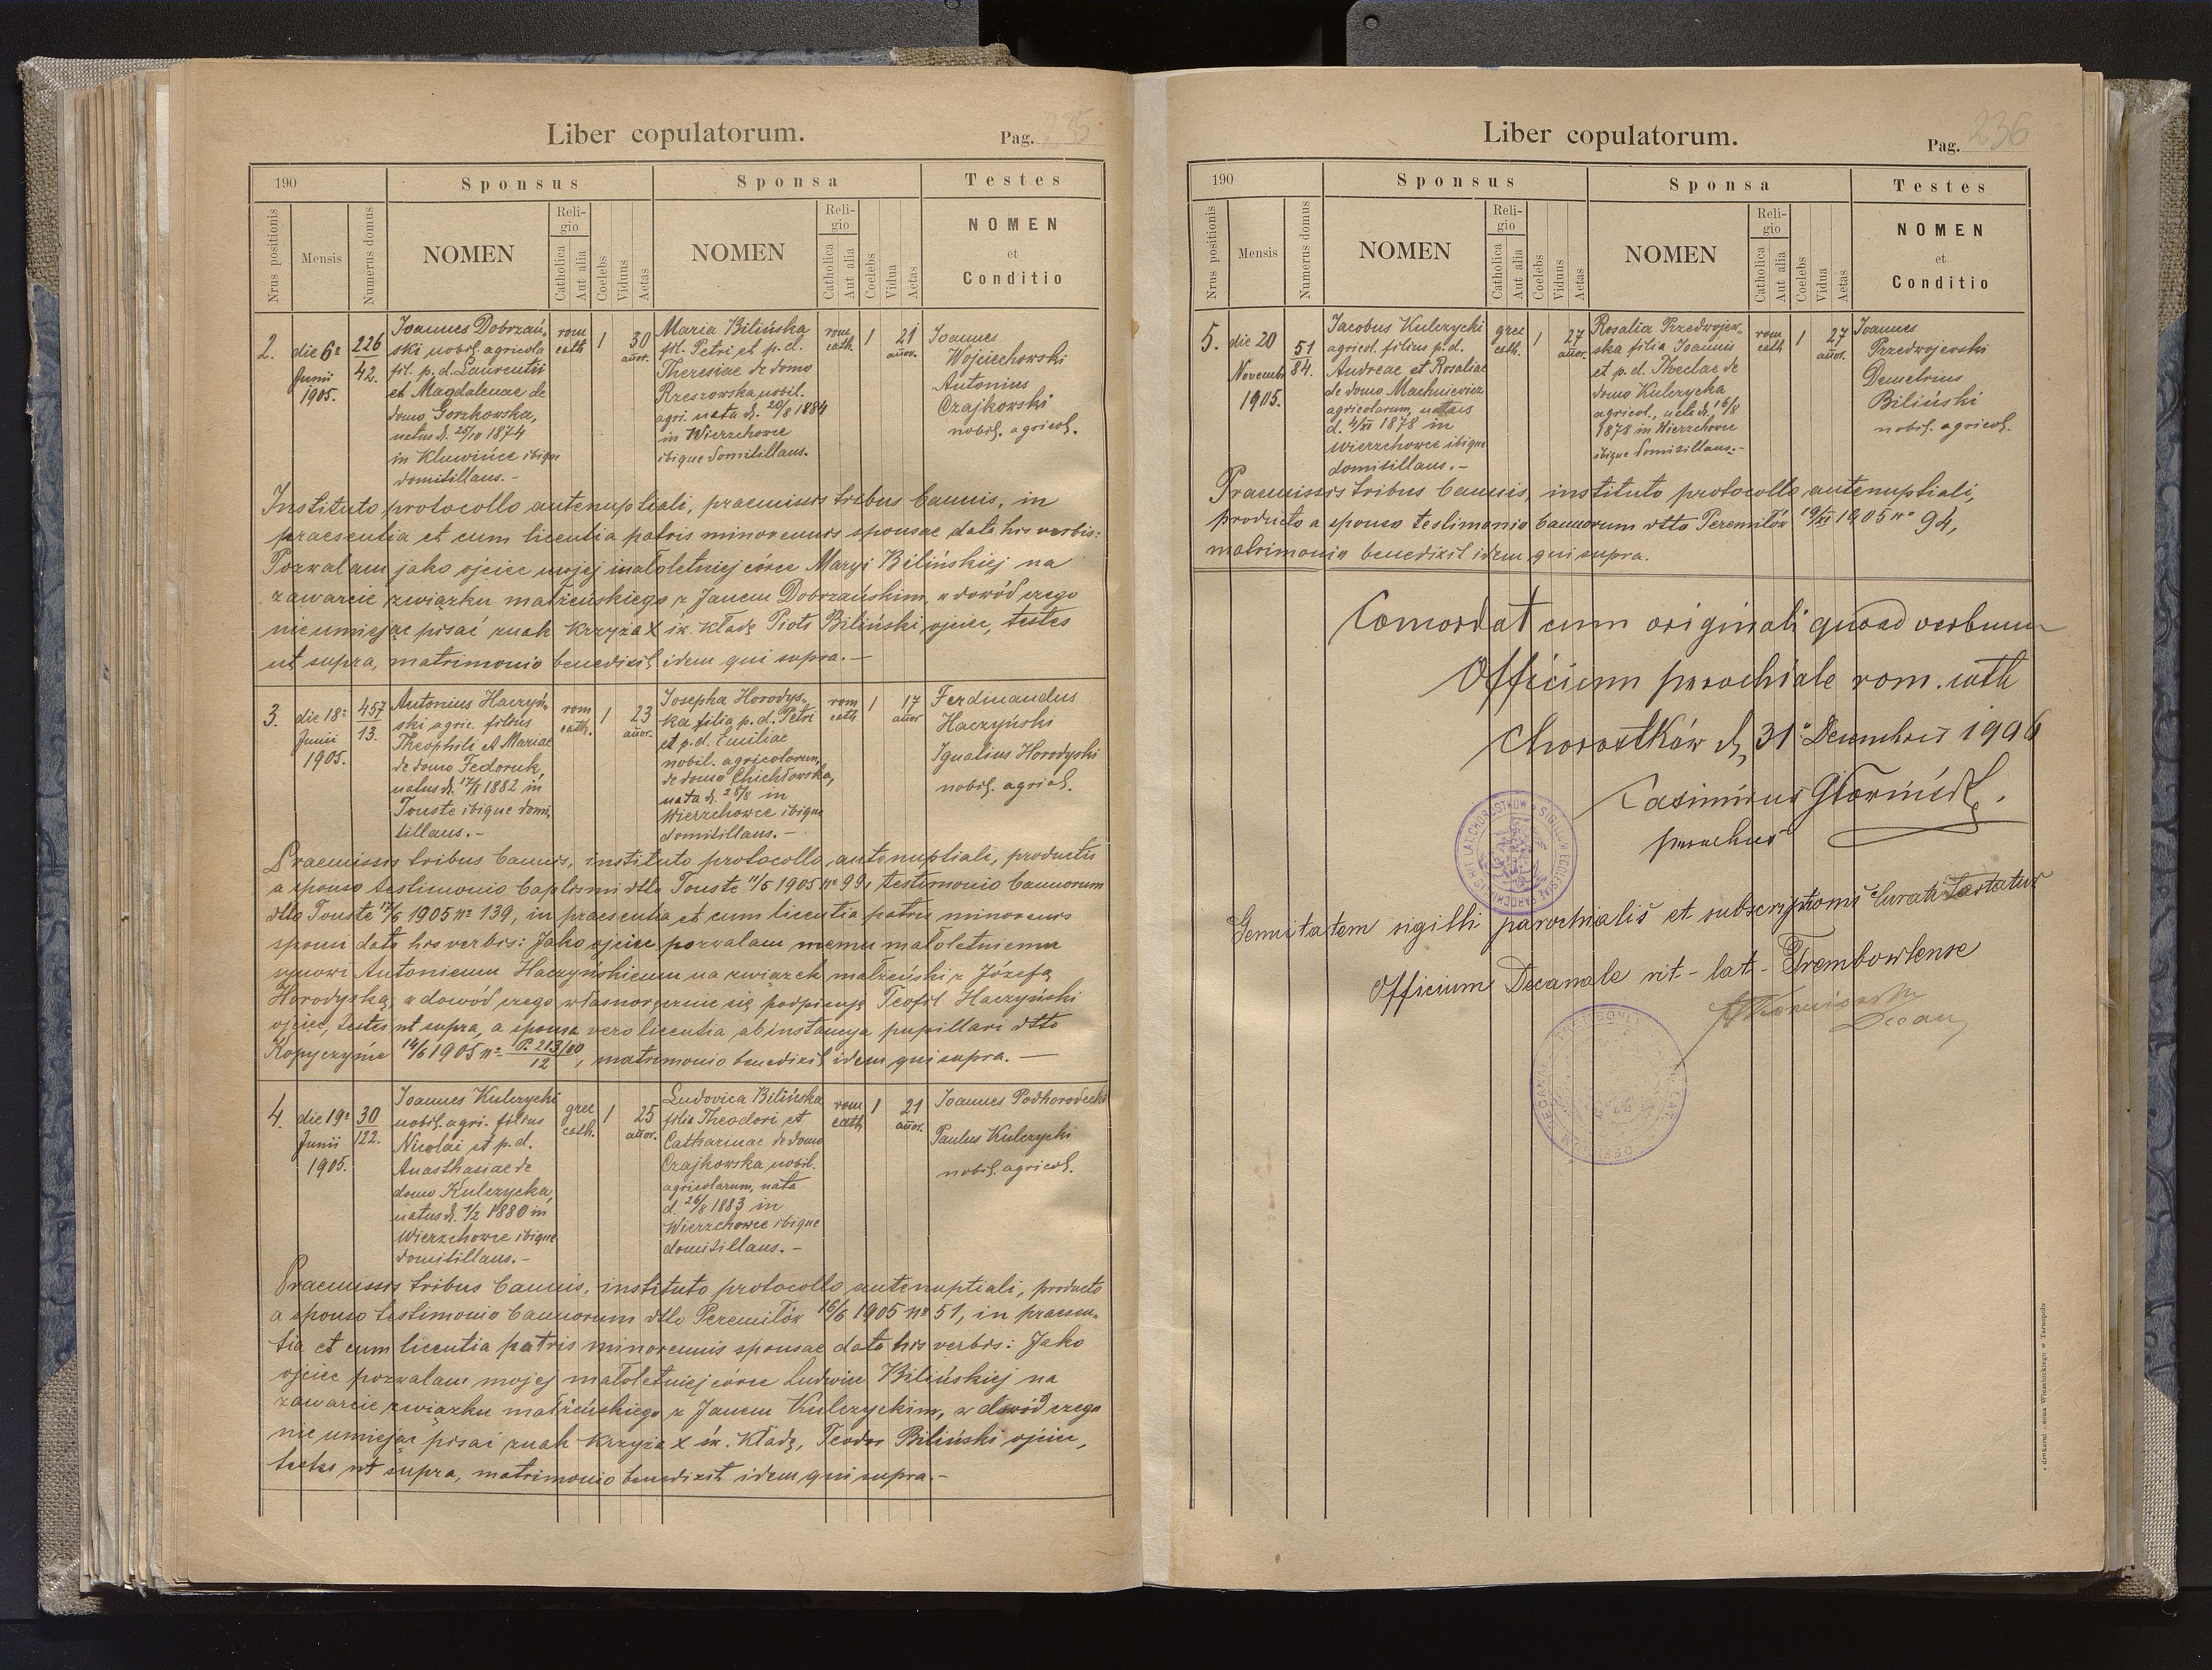 Liber copulatorum.
Pag. 235
190
Sponsus
Sponsa
Testes
Nrus positionis
Mensis
Numerus domus
NOMEN
Religio
Catholica
Aut alia
Coelebs
Viduus
Aetas
NOMEN
Religio
Catholica
Aut alia
Coelebs
Vidua
Aetas
NOMEN
et
Conditio
2.
die 6ª
Junii
1905.
226
42.
Joannes Dobrzań-
ski nobil. agricola
fil. p. d. Laurentii
et Magdalenae de
domo Gorzkowska,
natus d. 25/10 1874
in Kluwińce ibique
domitillans.-
rom
cath
1
30
annor.
Maria Bilińska
fil. Petri et p. d.
Theresiae de domo
Rzeszowska nobil.
agri. nata d. 20/8 1884
in Wierzchowce
ibique domitillans.
rom
cath.
1
21
annor.
Joannes
Wojciechowski
Antonius
Czajkowski
nobil. agricol.
Instituto protocollo antenuptiali, praemissis tribus bannis, in
praesentia et cum licentia patris minorennis sponsae data his verbis:
Pozwalam jako ojciec mojej małoletniej córce Maryi Bilińskiej na
zawarcie związku małżeńskiego z Janem Dobrzańskim, w dowód czego
nie umiejąc pisać znak krzyża X św. kładę Piotr Biliński ojciec, testes
ut supra, matrimonio benedixit idem qui supra.-
3.
die 18ª
Junii
1905.
457
13.
Antonius Haczyń-
ski agric. filius
Theophili et Mariae
de domo Fedoruk,
natus d. 17/8 1882 in
Touste ibique domi-
tillans.-
rom
cath.
1
23
annor.
Josepha Horodys-
ka filia p. d. Petri
et p. d. Emiliae
nobil. agricolorum,
de domo Chichłowska,
nata d. 28/8 in
Wierzchowce ibique
domitillans.-
rom
cath
1
17
annor
Ferdinandus
Haczyński
Ignatius Horodyski
nobil. agricol.
Praemissis tribus bannis, instituto protocollo antenuptiali, productis
a sponso testimonio baptismi dtto Touste 11/5 1905 nº 99, testimonio bannorum
dtto Touste 17/6 1905 nº 139, in praesentia et cum licentia patris minorennis
sponsi data his verbis: Jako ojciec pozwalam memu małoletniemu
synowi Antoniemu Haczyńskiemu na związek małżeński z Józefą
Horodyską, w dowód czego własnoręcznie się podpisuję Teofil Haczyński
ojciec, testes ut supra, a sponsa vero licentia ab instancya pupillari dtto
Kopyczyńce 14/6 1905 nº P. 213/00 / 12, matrimonio benedixit idem qui supra.-
4.
die 19ª
Junii
1905.
30
122.
Joannes Kulczycki
nobil. agri. filius
Nicolai et p. d.
Anasthasiae de
domo Kulczycka,
natus d. 1/2 1880 in
Wierzchowce ibique
domitillans.-
grec
cath.
1
25
annor.
Ludovica Bilińska
filia Theodori et
Catharinae de domo
Czajkowska nobil.
agricolarum, nata
d. 26/8 1883 in
Wierzchowce ibique
domitillans.-
rom
cath
1
21
annor.
Joannes Podhorodecki
Paulus Kulczycki
nobil. agricol.
Praemissis tribus bannis, instituto protocollo antenuptiali, producto
a sponso testimonio bannorum dtto Peremiłów 16/6 1905 nº 51, in praesen-
tia et cum licentia patris minorennis sponsae data his verbis: Jako
ojciec pozwalam mojej małoletniej córce Ludwice Bilińskiej na
zawarcie związku małżeńskiego z Janem Kulczyckim, w dowód czego
nie umiejąc pisać znak krzyża X św. kładę, Teodor Biliński ojciec,
testes ut supra, matrimonio benedixit idem qui supra.-
Liber copulatorum.
Pag. 236
190
Sponsus
Sponsa
Testes
Nrus positionis
Mensis
Numerus domus
NOMEN
Religio
Catholica
Aut alia
Coelebs
Viduus
Aetas
NOMEN
Religio
Catholica
Aut alia
Coelebs
Vidua
Aetas
NOMEN
et
Conditio
5.
die 20
Novembr
1905.
51
84.
Jacobus Kulczycki
agricol. filius p. d.
Andreae et Rosaliae
de domo Machniewicz
agricolarum, natus
d. 4/XI 1878 in
Wierzchowce ibique
domisillans.-
grec
cath.
1
27
annor.
Rosalia Przedwojew-
ska filia Joannis
et p. d. Theclae de
domo Kulczycka
agricol., nata d. 16/8
1878 in Wierzchowce
ibique domisillans.-
rom
cath
1
27
annor.
Joannes
Przedwojewski
Demetrius
Biliński
nobil. agricol.
Praemissis tribus bannis, instituto protocollo antenuptiali,
producto a sponso testimonio bannorum dtto Peremiłów 19/XI 1905 nº 94,
matrimonio benedixit idem qui supra.
Concordat cum originali quoad verbum
Officium parochiale rom. cath
Chorostków d. 31º Decembris 1906
Casimirus
parochus
Genuitatem sigilli parochialis et subscriptionis Curati testatur
Officium Decanale rit-lat-Trembowlense
Decan
z drukarni Leona Wierzbickiego w Tarnopolu